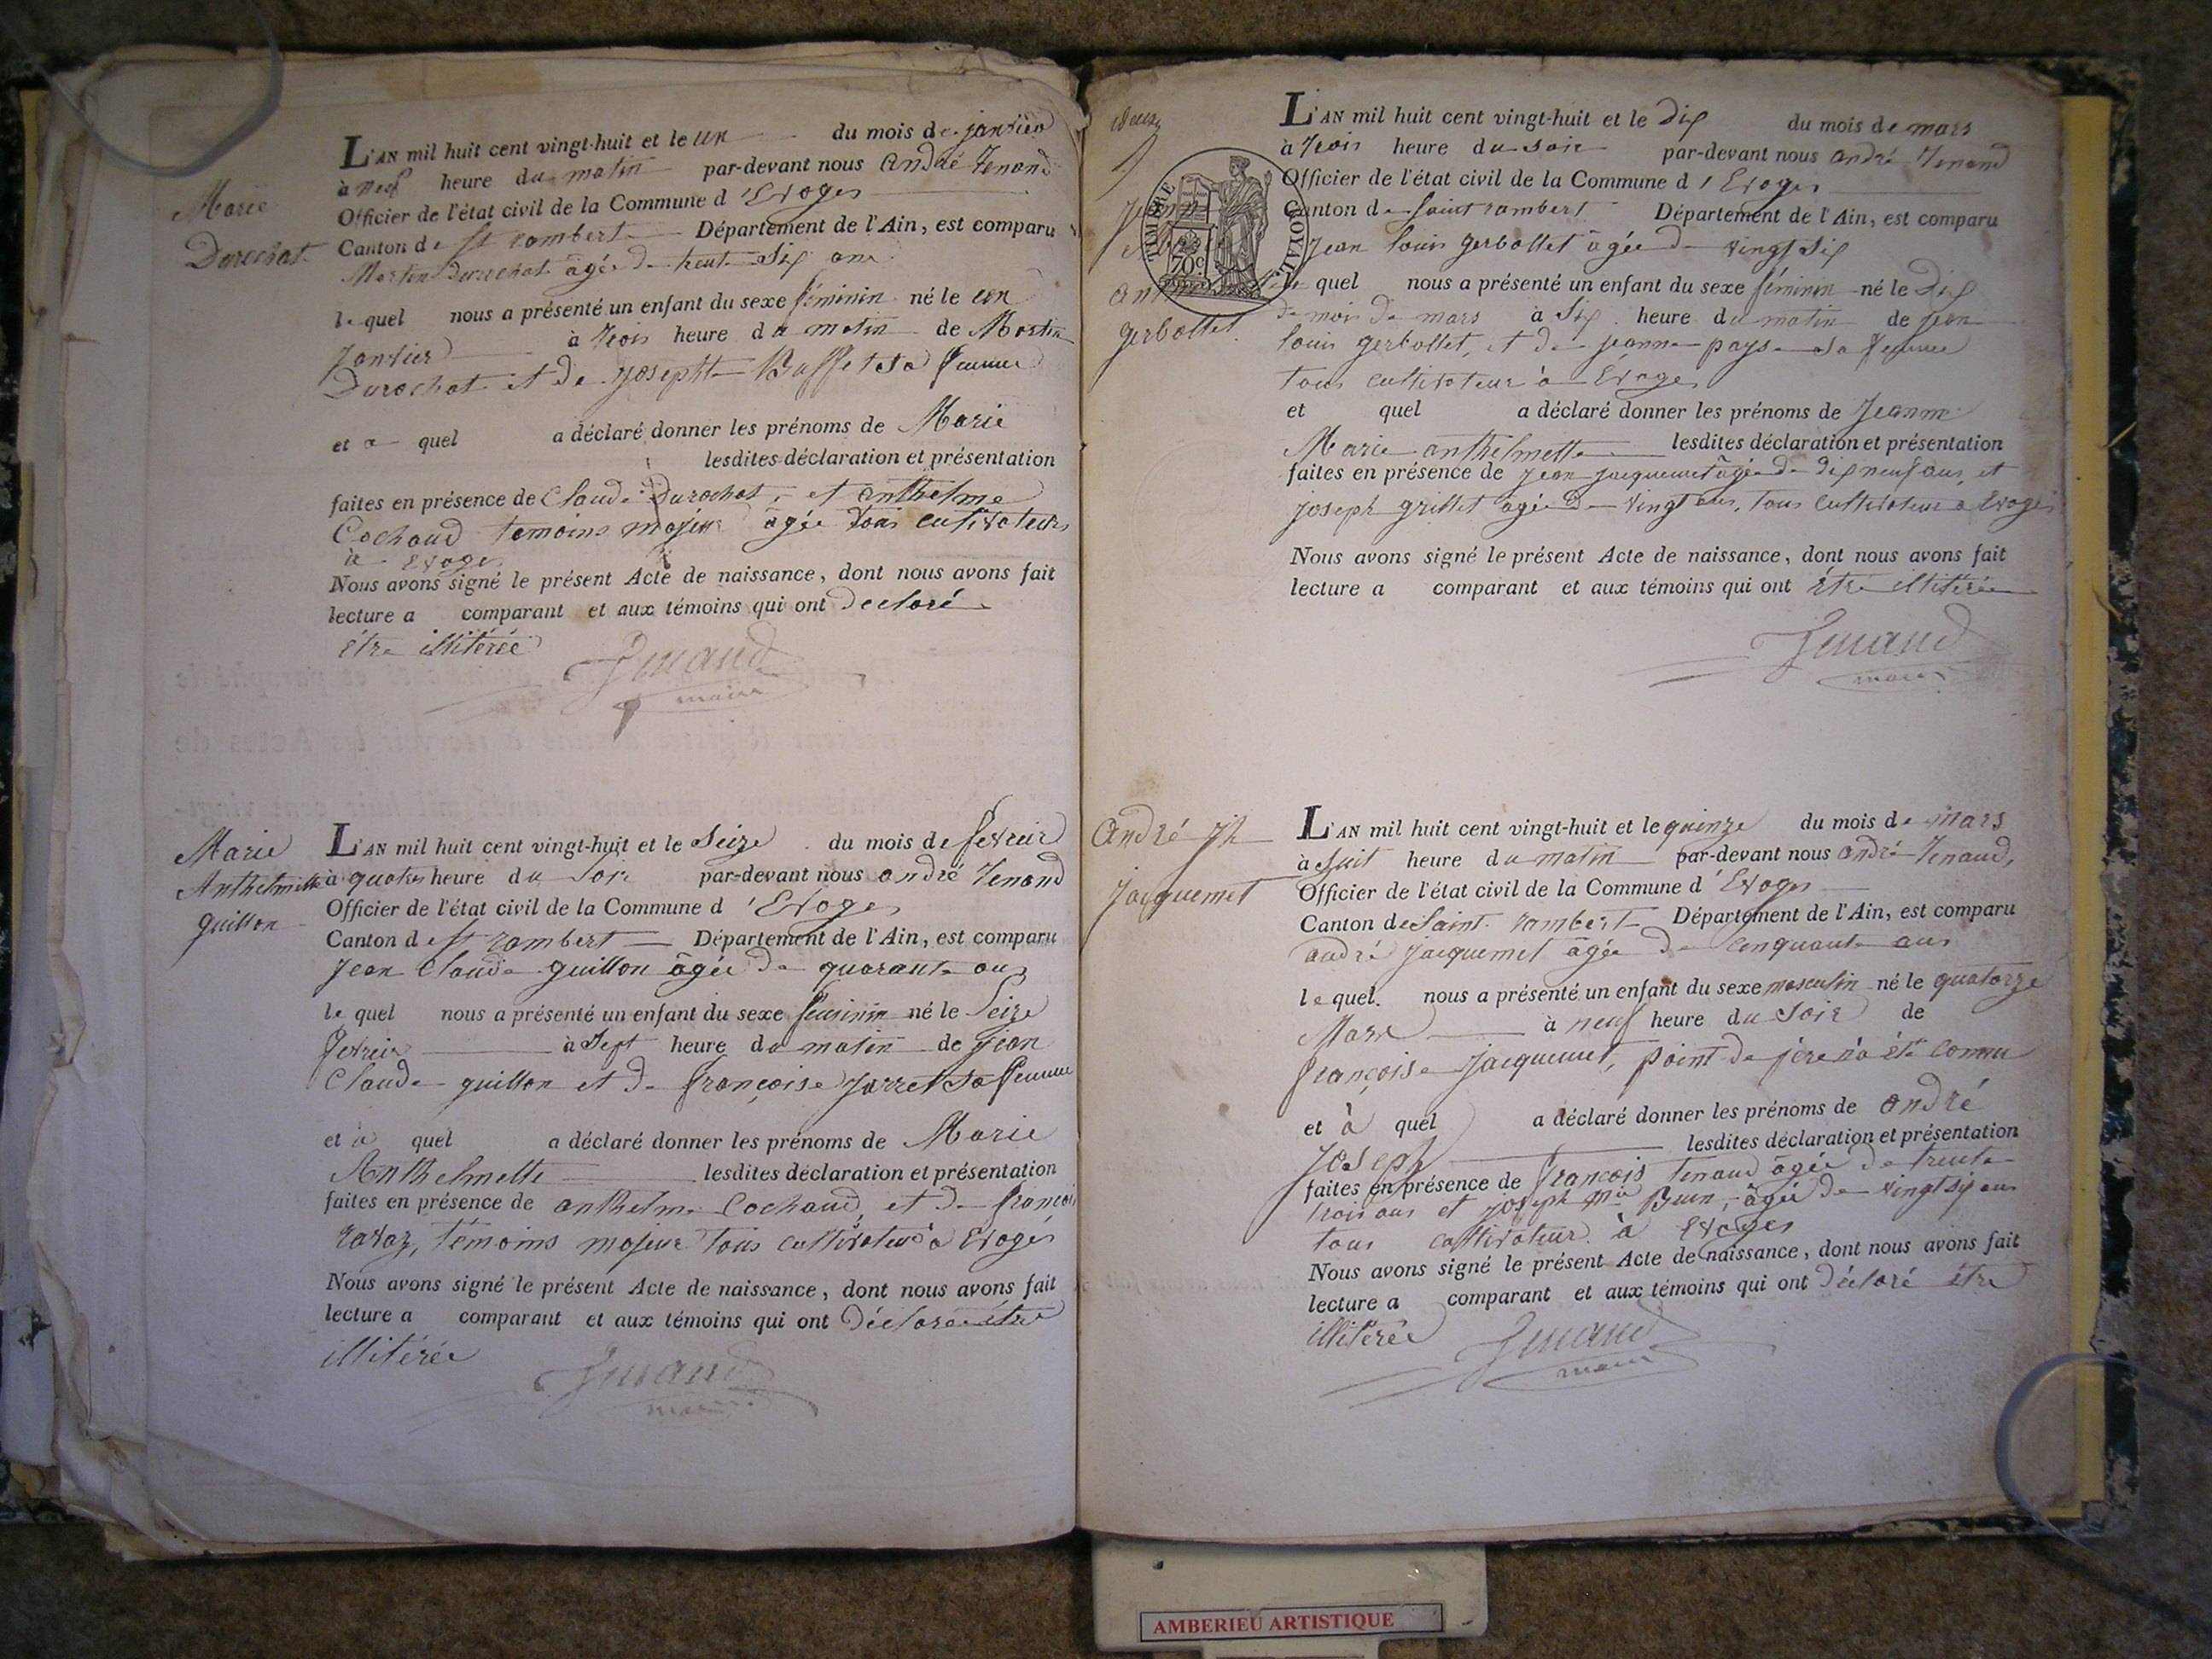 Marie
Durochat
L'AN mil huit cent vingt-huit et le un du mois de janvier
à neuf heure du matin par-devant nous André Tenand
Officier de l'état civil de la Commune d'Evoges
Canton de St rambert Département de l'Ain, est comparu
Martin Durochat âgée de trente six ans
le quel nous a présenté un enfant du sexe féminin né le un
janvier à trois heure du matin de Martin
Durochat et de josephte Buffet sa femme
et a quel a déclaré donner les prénoms de Marie
lesdites déclaration et présentation
faites en présence de Claude Durochat, et anthelme
Cochaud temoins majeur âgée tous cultivateurs
à Evoges
Nous avons signé le présent Acte de naissance, dont nous avons fait
lecture a comparant et aux témoins qui ont declaré
être illitérée
Tenand
maire
Marie
Anthelmette
guillon
L'AN mil huit cent vingt-huit et le Seize du mois de fevreir
à quatre heure du Soir par-devant nous andré Tenand
Officier de l'état civil de la Commune d'Evoges
Canton de St rambert Département de l'Ain, est comparu
Jean Claude guillon âgée de quarante ans
le quel nous a présenté un enfant du sexe feminin né le Seize
fevreir à Sept heure du matin de jean
Claude guillon et de françoise jarret sa femme
et à quel a déclaré donner les prénoms de Marie
Anthelmette lesdites déclaration et présentation
faites en présence de anthelme Cochaud, et de françois
ravaz, témoins majeur tous cultivateur à Evoges
Nous avons signé le présent Acte de naissance, dont nous avons fait
lecture a comparant et aux témoins qui ont déclaré être
illitérée
Tenand
maire
TIMBRE ROYAL
70c
gerbollet.
L'AN mil huit cent vingt-huit et le dix du mois de mars
à trois heure du soir par-devant nous andré Tenand
Officier de l'état civil de la Commune d'Evoges
Canton de Saint rambert Département de l'Ain, est comparu
Jean louis gerbollet âgée de vingt six
le quel nous a présenté un enfant du sexe féminin né le dix
du mois de mars à Six heure du matin de jean
louis gerbollet, et de jeanne paysa sa femme
tous cultivateur à Evoges
et quel a déclaré donner les prénoms de Jeanne
Marie anthelmette lesdites déclaration et présentation
faites en présence de jean jacquemet âgée de dix neuf ans, et
joseph grillet âgée de vingt ans, tous cultivateur à Evoges
Nous avons signé le présent Acte de naissance, dont nous avons fait
lecture a comparant et aux témoins qui ont être illitérée
Tenand
maire
André Jh
Jacquemet
L'AN mil huit cent vingt-huit et le quinze du mois de mars
à huit heure du matin par-devant nous andré Tenand,
Officier de l'état civil de la Commune d'Evoges
Canton de Saint rambert Département de l'Ain, est comparu
andré jacquemet âgée de cinquante ans
le quel. nous a présenté un enfant du sexe masculin né le quatorze
Mars à neuf heure du Soir de
françoise jacquemet, point de père n'a été connu
et à quel a déclaré donner les prénoms de andré
joseph lesdites déclaration et présentation
faites en présence de françois Tenand âgée de trente
trois ans et joseph Mie Buin, âgée de vingt six ans
tous cultivateur à Evoges
Nous avons signé le présent Acte de naissance, dont nous avons fait
lecture a comparant et aux témoins qui ont déclaré être
illitérée
Tenand
maire
AMBERIEU ARTISTIQUE